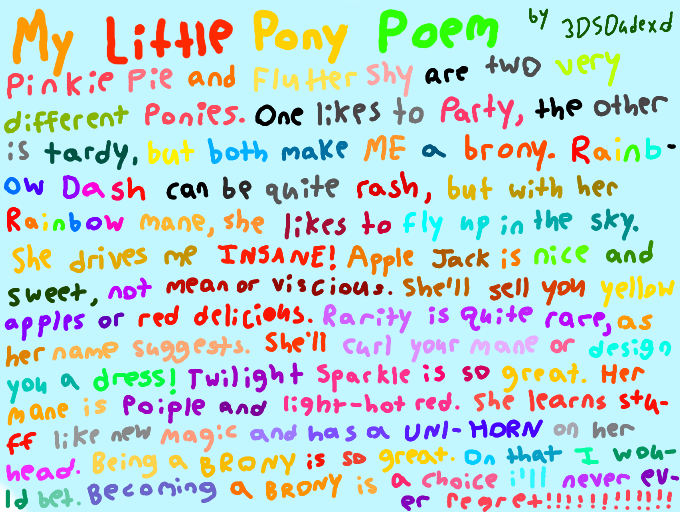 My Little Pony Poem by 3DSDudexd
Pinkie Pie and Flutter Shy are two very
different Ponies. One likes to Party, the other
is tardy, but both make ME a brony. Rainb-
ow Dash can be quite rash, but with her
Rainbow mane, she likes to fly up in the sky.
She drives me INSANE! Apple Jack is nice and
sweet, not mean or viscious. She'll sell you yellow
apples or red delicious. Rarity is quite rare, as
her name suggests. She'll curl your mane or design
you a dress! Twilight Sparkle is so great. Her
mane is Poiple and light-hot red. She learns stu-
ff like new magic and has a UNI-HORN on her
head. Being a BRONY is so great. On that I wou-
ld bet. Becoming a BRONY is a choice i'll never ev-
er regret!!!!!!!!!!!!